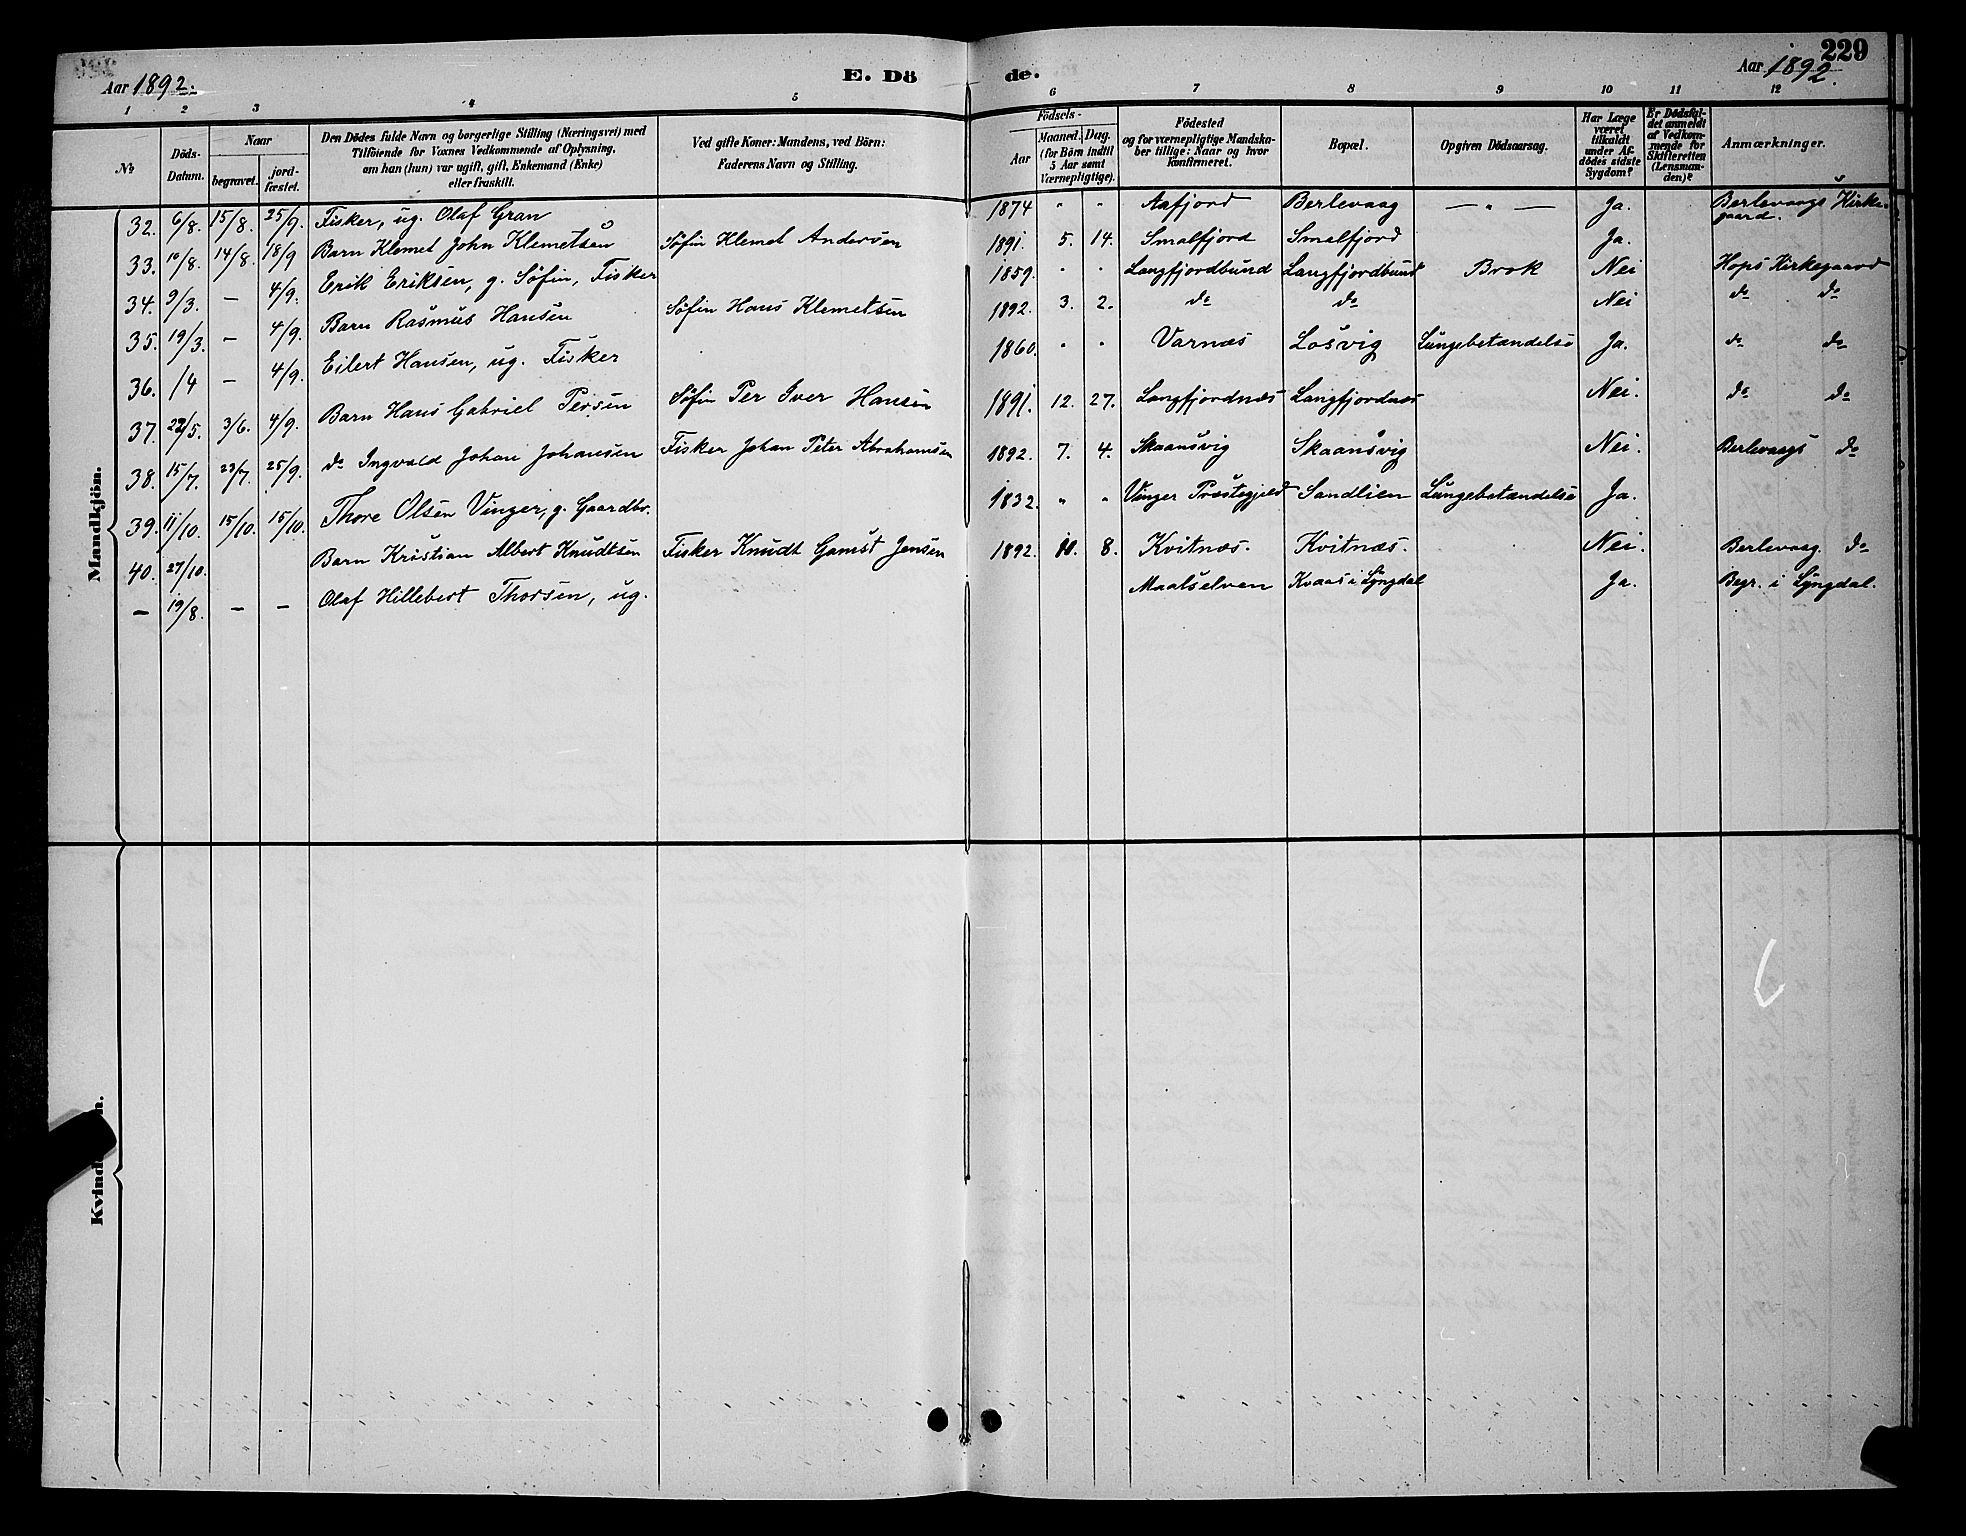 229
Aar 1892.
E. Dö
de.
Aar 1892.
1 2 3 4 5 6 7 8 9 10 11 12
No
Döds-Datum.
Naar
begravet.
jord-fæstet.
Den Dödes fulde Navn og borgerlige Stilling (Næringsvei) med
Tilföiende for Voxnes Vedkommende af Oplysning,
om han (hun) var ugift, gift, Enkemand (Enke)
eller fraskilt.
Ved gifte Koner: Mandens, ved Börn:
Faderens Navn og Stilling.
Födsels-
Aar
Maaned. Dag.
(for Börn indtil
5 Aar samt
Værnepligtige).
Födested
og for værnepligtige Mandska-
ber tillige: Naar og hvor
konfirmeret.
Bopæl.
Opgiven Dödsaarsag.
Har Læge
været
tilkaldt
under Af-
dödes sidste
Sygdom?
Er Dödsfal-
det anmeldt
af Vedkom-
mende for
Skifteretten
(Lensman-
den)?
Anmærkninger.
Mandkjön.
32. 6/8. 15/8. 25/9. Fisker, ug. Olaf Gran 1874 " " Aafjord Berlevaag — " — Ja. Berlevaags Kirke-
gaard.
33. 10/8. 14/8. 18/9 Barn Klemet John Klemetsen Söfin Klemet Andersen 1891. 5. 14. Smalfjord Smalfjord Ja.
34. 9/3. — 4/9. Erik Eriksen, g. Söfin, Fisker 1859. " " Langfjordbund Langfjordbund Brok Nei Hops Kirkegaard
35. 19/3. — 4/9. Barn Rasmus Hansen Söfin Hans Klemetsen 1892. 3. 2. do do Nei do do
36. /4 — 4/9. Eilert Hansen, ug. Fisker 1860. " " Varnæs Losvig Lungebetændelse Ja. do do
37. 22/5. 3/6. 4/9. Barn Hans Gabriel Persen Söfin Per Iver Hansen 1891. 12. 27. Langfjordnæs Langfjordnæs Nei. do do
38. 15/7. 23/7. 25/9. do Ingvald Johan Johansen Fisker Johan Peter Abrahamsen 1892. 7. 4. Skaansvig Skaansvig Nei. Berlevaags do
39. 11/10. 15/10. 15/10. Thore Olsen Vinger, g. Gaardbr. 1832. " " Vinger Præstegjeld Sandlien Lungebetændelse Ja.
40. 27/10. Barn Kristian Albert Knudtsen Fisker Knudt Gamst Jensen 1892. 8. Kvitnæs. Kvitnæs. Nei. Berlevaag. do
— 19/8. — — Olaf Hillebert Thorsen, ug. Maalselven Kvaas i Lyngdal Ja. Begr. i Lyngdal.